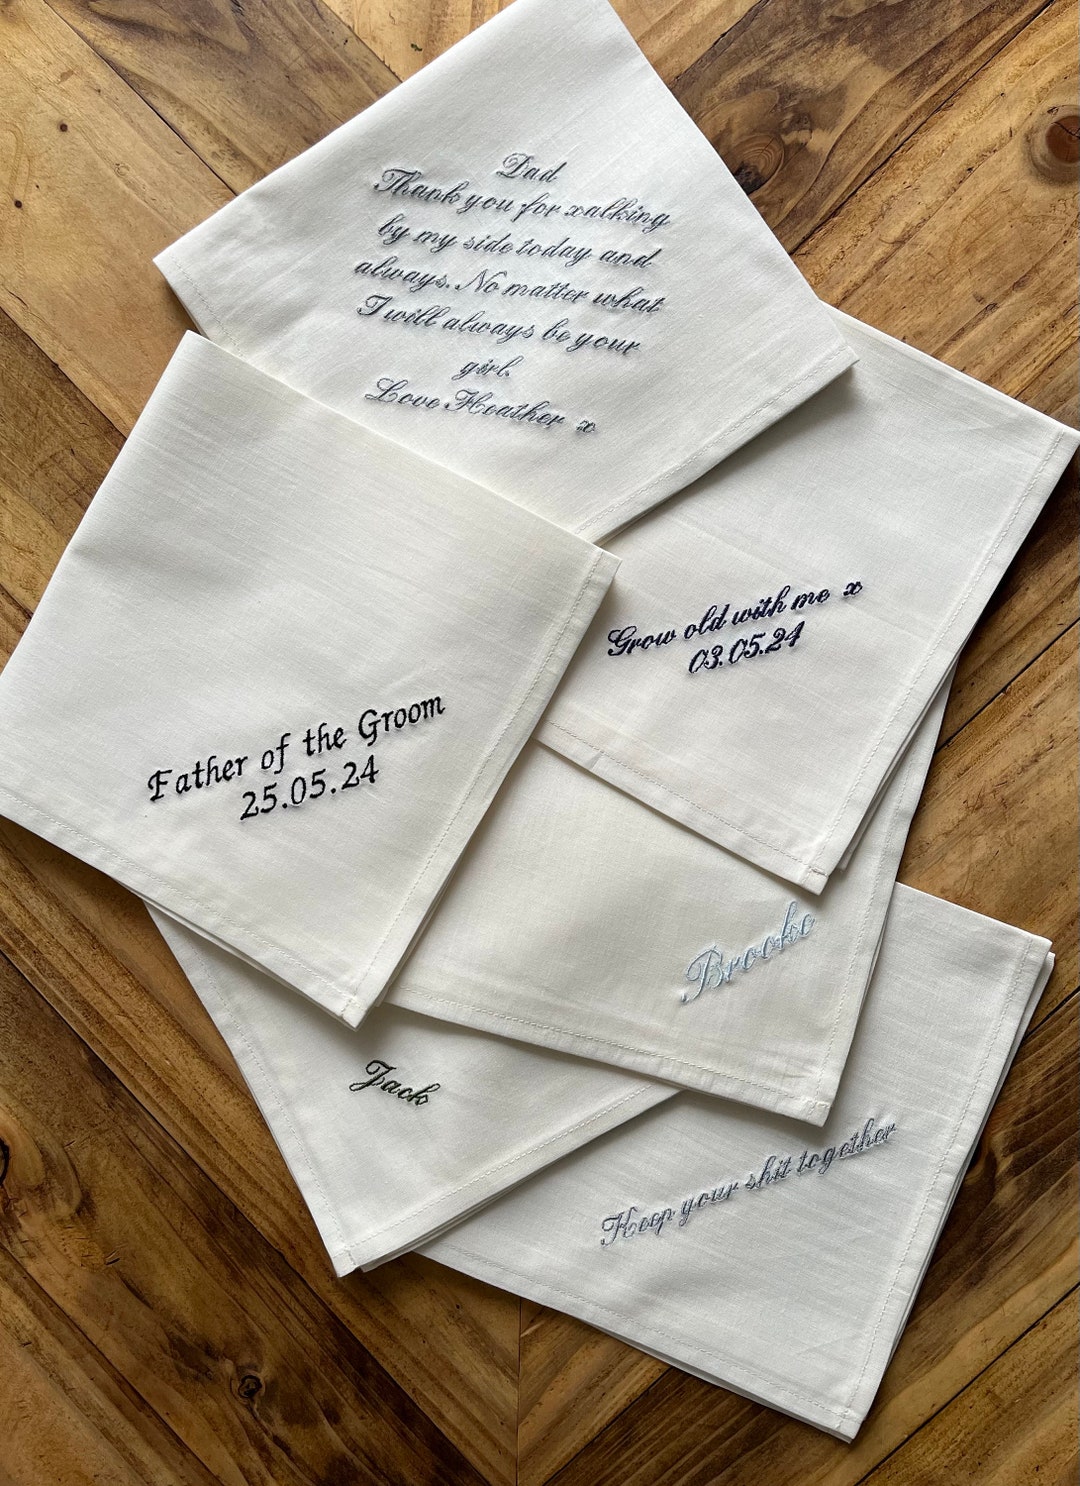 Dad
Thank you for walking
by my side today and
always. No matter what
I will always be your
girl.
Love Heather x
Grow old with me x
03.05.24
Father of the Groom
25.05.24
Brooke
Jack
Keep your shit together